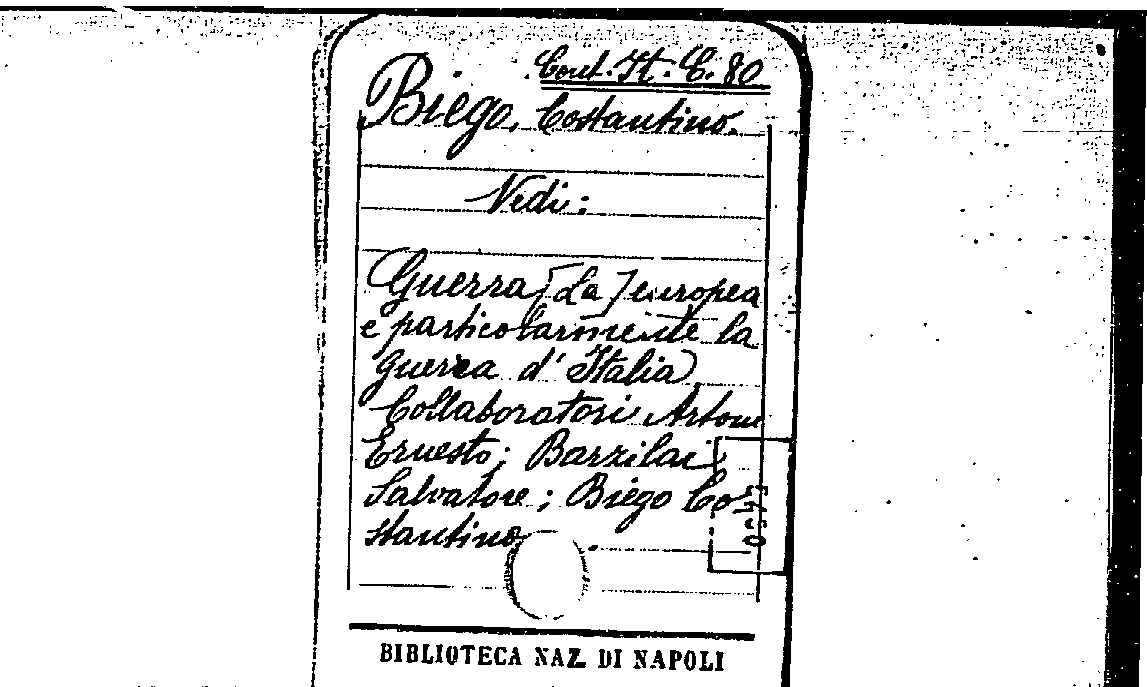 Cont. It. C. 80
Biego, Costantino.
Vedi:
Guerra [La] europea
e particolarmente la
guerra d'Italia
Collaboratori Artom
Ernesto; Barzilai
Salvatore; Biego Co-
stantino
BIBLIOTECA NAZ. DI NAPOLI